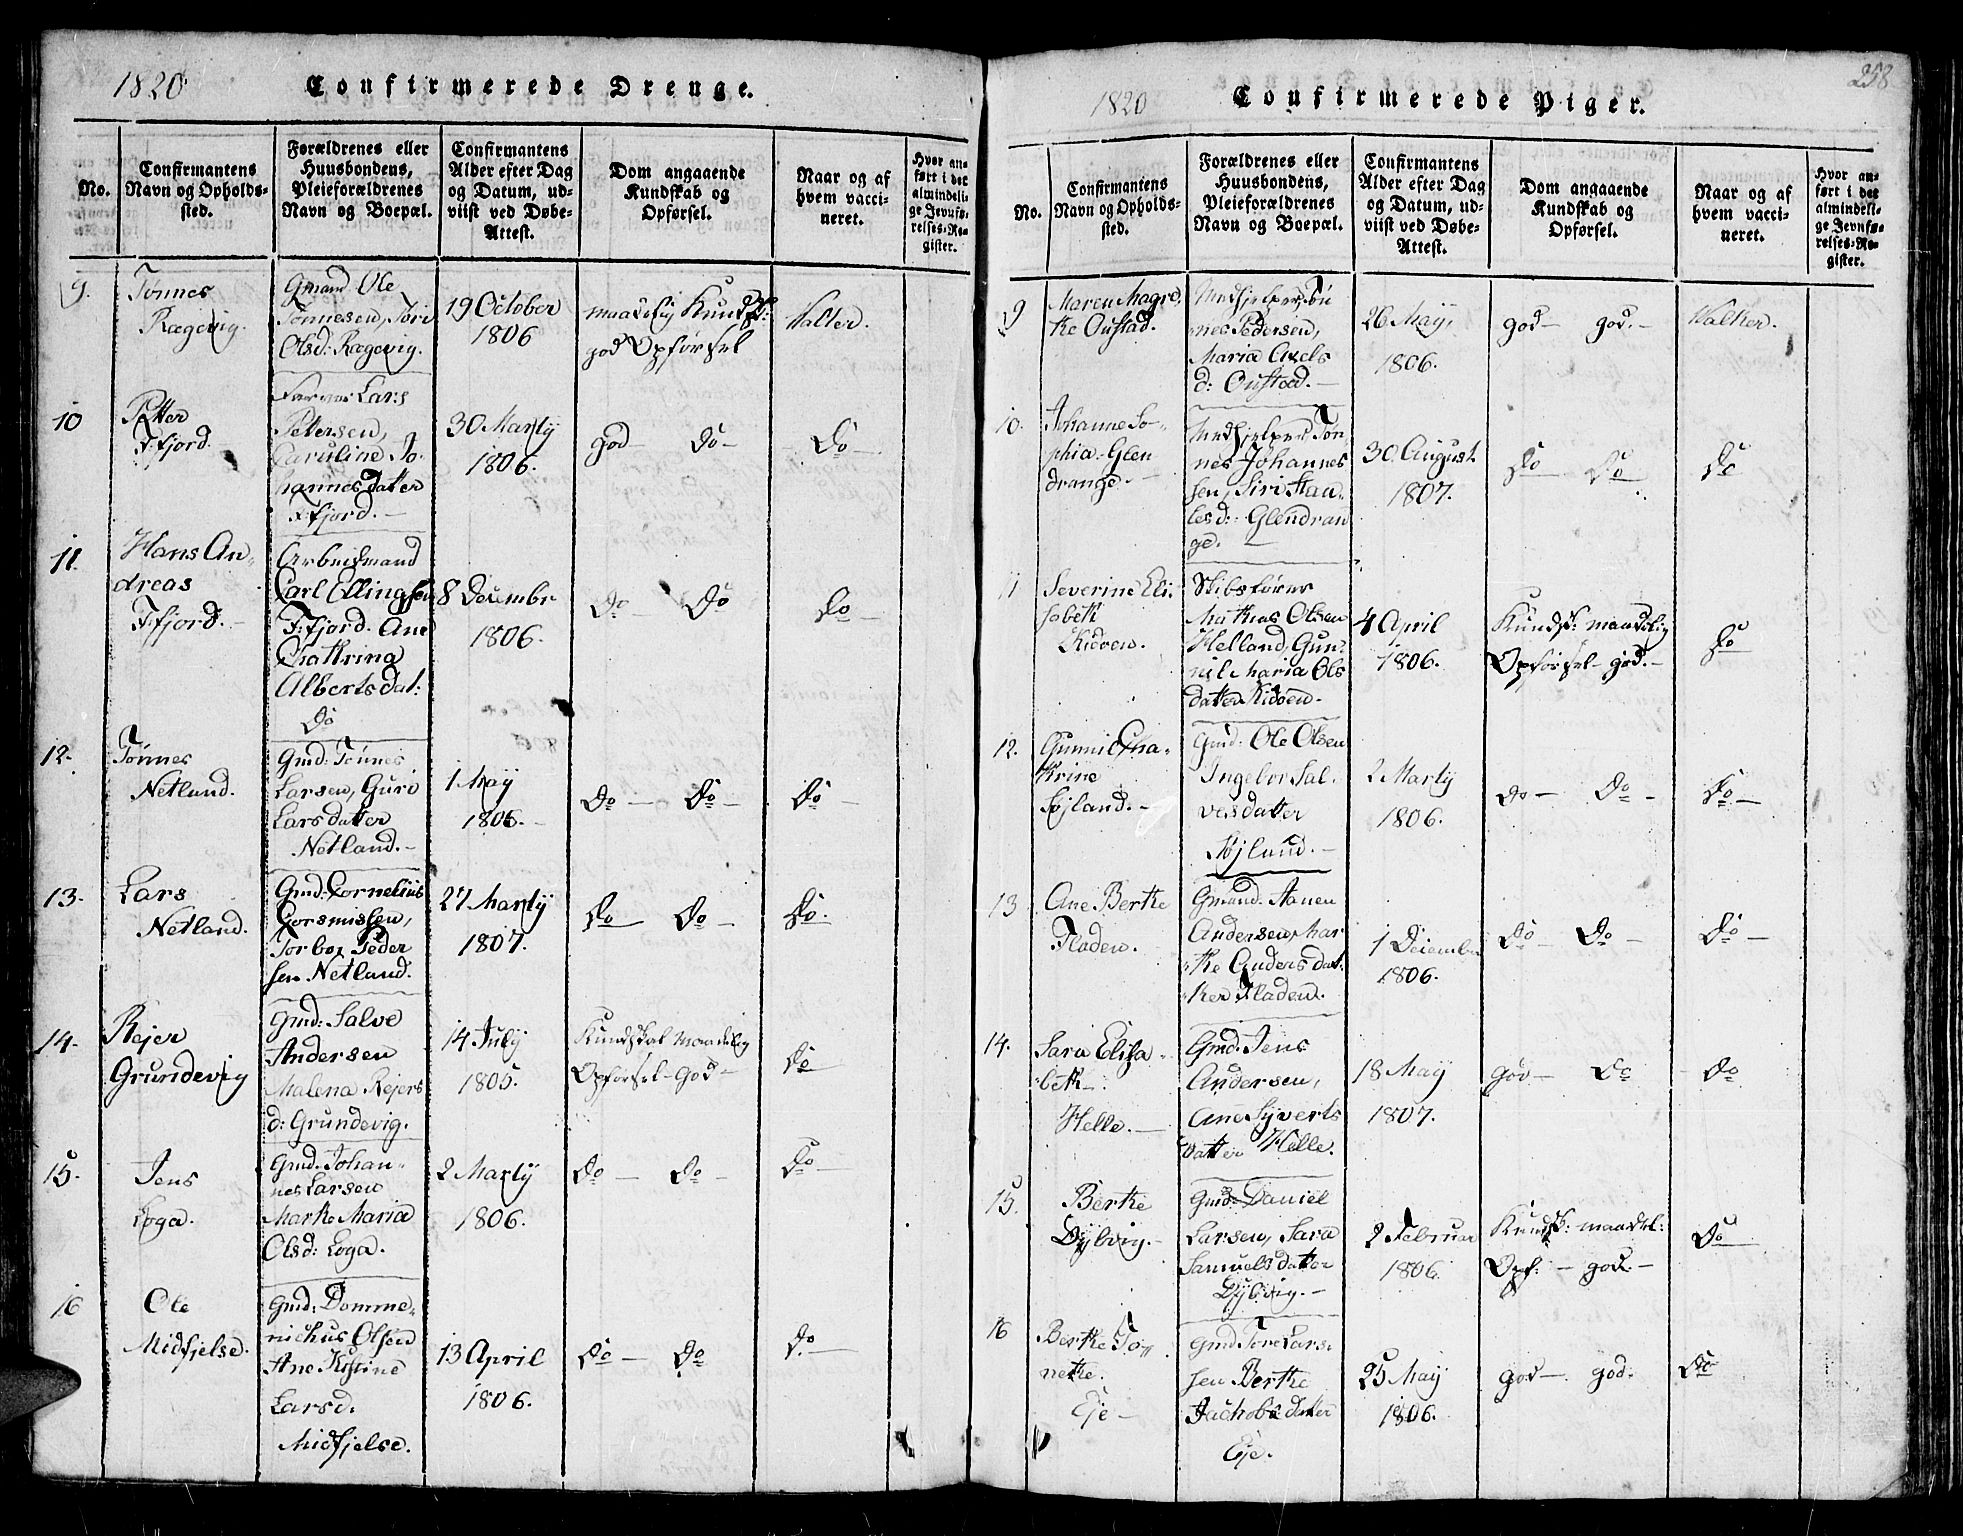 1820 Confirmerede Drenge.
No.
Confirmantens
Navn og Opholds-
sted.
Forældrenes eller
Huusbondens,
Pleieforældrenes
Navn og Boepæl.
Confirmantens
Alder efter Dag
og Datum, ud-
viist ved Døbe-
Attest.
Dom angaaende
Kundskab og
Opførsel.
Naar og af
hvem vacci-
neret.
Hvor an-
ført i det
almindeli-
ge Jevnfø-
relses-Re-
gister.
9.
Tønnes
Rægevig.
Gmand Ole
Tønnesen, Siri
Olsd: Rægevig.
19 October
1806
maadelig Kundsk:
god Opførsel
Walter.
10
Petter
F:fjord.
Lars
Petersen,
Caruline Jo-
hannesdatter
F:fjord.
30 Martÿ
1806.
god Do
Do
11
Hans An-
dreas
F:fjord.
Arbeidsmand
Carl Ellingsen
F:fjord. Ane
Chatrina
Albertsdat:
Do
8 Decembr
1806.
Do Do
Do
12.
Tønnes
Netland.
Gmd: Tønnes
Larsen, Guri
Larsdatter
Netland.
1 Maÿ
1806.
Do Do
Do
13.
Lars
Netland.
Gmd: Cornelius
Gorsmissen,
Torbor Peder
sen Netland.
27 Martÿ
1807.
Do Do
Do.
14.
Rejer
Grundevig
Gmd: Salve
Andersen
Malena Rejers
d: Grundevig.
14 Julÿ
1805.
Kundskab maadelig
Opførsel god
Do
15.
Jens
Loga.
Gmd. Johan-
nes Larsen
Marte Maria
Olsd: Loga.
2 Martÿ
1806.
Do Do
Do
16
Ole
Midfjelse.
Gmd: Domme-
nichus Olsen
Ane Kistine
Larsd.
Midfjelse.
13 April
1806.
Do Do
Do
258
1820 Confirmerede Piger.
No.
Confirmantens
Navn og Opholds-
sted.
Forældrenes eller
Huusbondens,
Pleieforældrenes
Navn og Boepæl.
Confirmantens
Alder efter Dag
og Datum, ud-
viist ved Døbe-
Attest.
Dom angaaende
Kundskab og
Opførsel.
Naar og af
hvem vacci-
neret.
Hvor an-
ført i det
almindeli-
ge Jevnfø-
relses-Re-
gister.
9
Maren Magre-
te Oustad.
Medhjelper Tøn
nes Pedersen,
Maria Axels
d: Oustad.
26 Maÿ,
1806.
god god.
Walter.
10.
Johanne So-
phia Glen
drange.
Medhjelper Tøn
nes Johannes
sen, Siri Staa-
lesd: Glendran
ge.
30 August
1807.
Do Do
Do
11
Severine Eli-
sabeth
Kidøen.
Skibsfører
Mathias Olsen
Helland, Gun-
nil Maria Ols
datter Kidøen.
4 April
1806.
Kundsk: maadelig
Opførsel god.
Do
12.
Gunni Cha-
trine
Søjland.
Gmd: Ole Olsen
Ingebor Sal-
vesdatter
Søjland.
2 Martÿ
1806.
Do Do
Do
13
Ane Berte
Fladen.
Gmand. Aanen
Andersen, Mar
te Andersdat-
ter Fladen.
1 Deiember
1806.
Do Do
Do
14.
Sara Elisa-
beth
Helle.
Gmd. Jens
Andersen,
Ane Syverts
datter Helle.
18 Maÿ
1807.
god Do
Do
15.
Berte
Dÿbvig.
Gmd: Daniel
Larsen, Sara
Samuelsdatter
Dÿbvig.
2 Februar
1806.
Kundsk: maadel:
Opf: god.
Do
16
Berte To-
nette.
Eje
Gmd Tore Lars-
sen Berte
Jachobsdatter
Eje.
25 Maÿ
1806.
god god.
Do